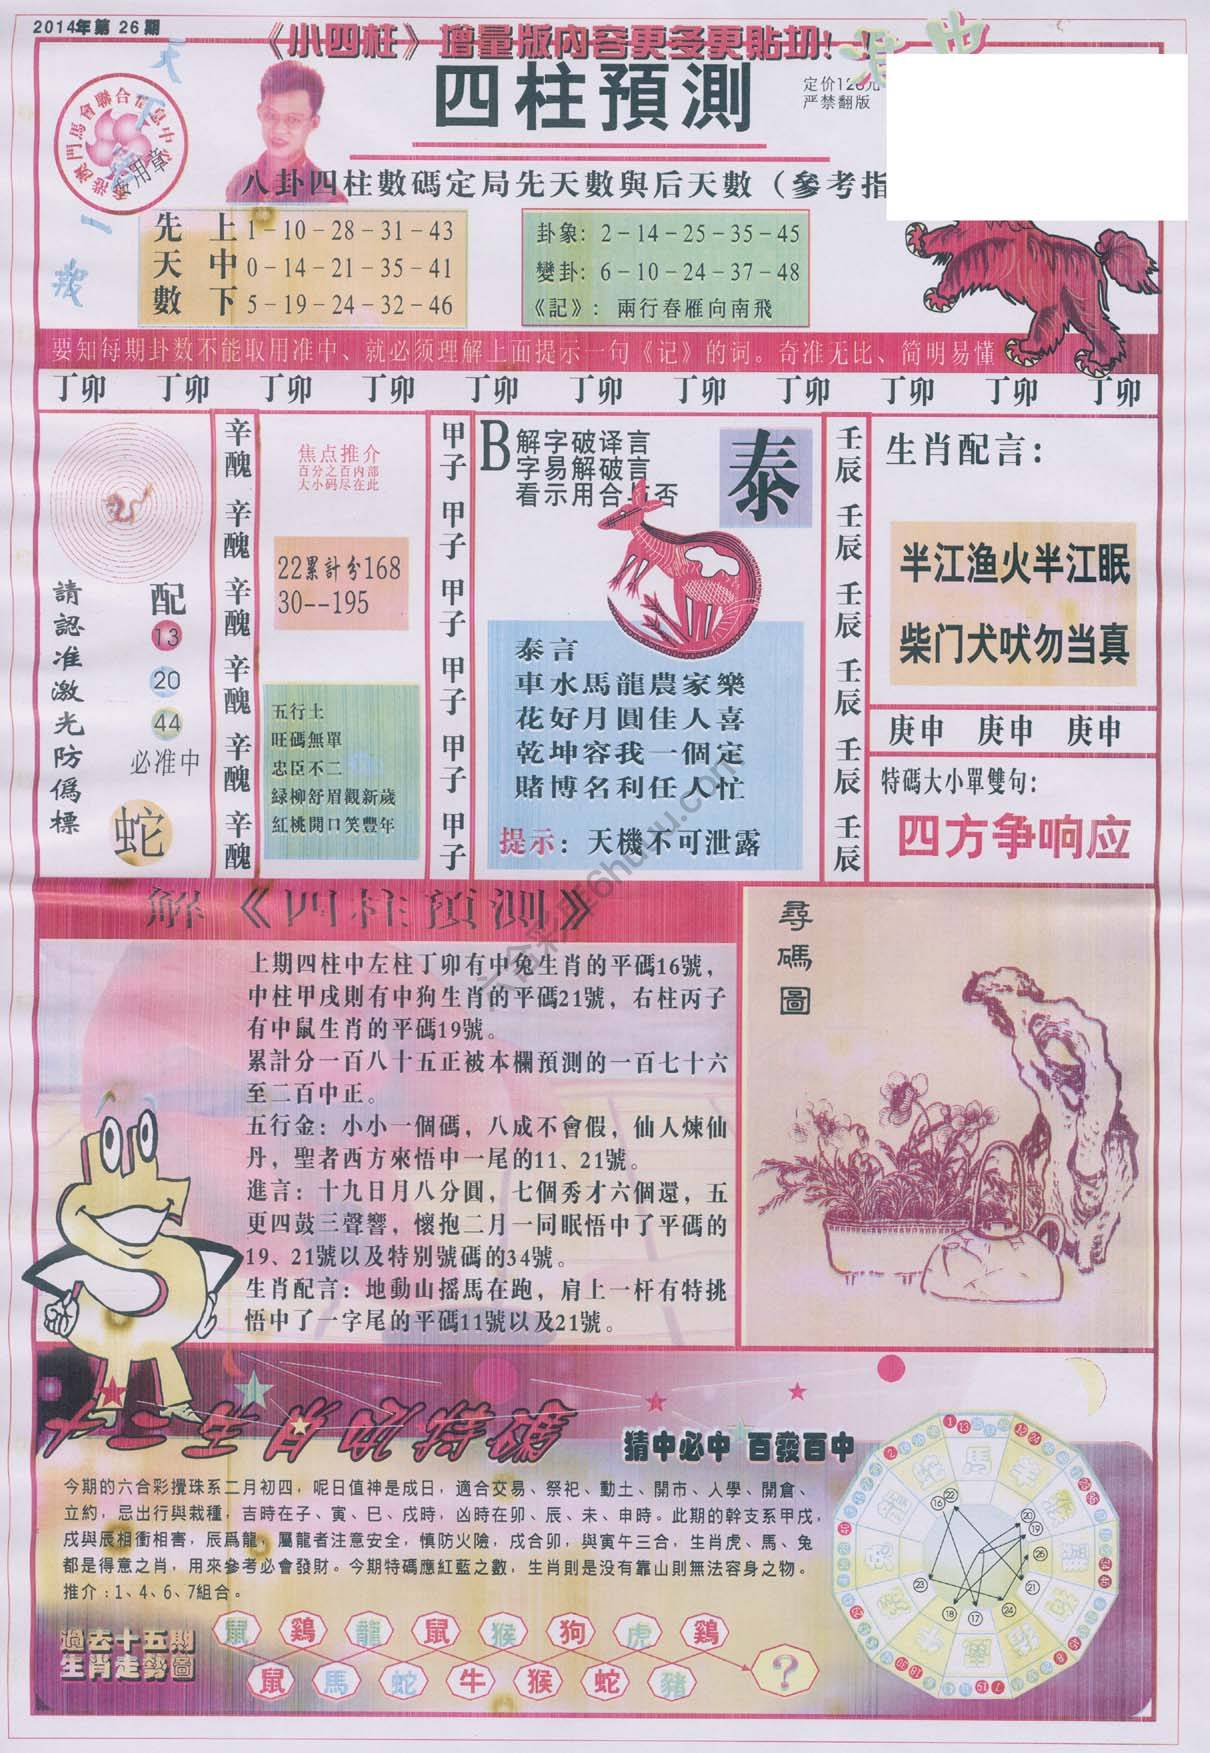 2014年第 26 期
《小四柱》增量版內容更多更貼切!
四柱預測
定价128元
严禁翻版
港澳門馬會聯合信息中心
專用章
天下第一報
八卦四柱數碼定局先天數與后天數（參考指
先天數
上 1-10-28-31-43
中 0-14-21-35-41
下 5-19-24-32-46
卦象: 2-14-25-35-45
變卦: 6-10-24-37-48
《記》: 兩行春雁向南飛
要知每期卦数不能取用准中、就必须理解上面提示一句《记》的词。奇准无比、简明易懂
丁卯 丁卯 丁卯 丁卯 丁卯 丁卯 丁卯 丁卯 丁卯 丁卯 丁卯
請認准激光防僞標
配
13
20
44
必准中
蛇
辛醜 辛醜 辛醜 辛醜 辛醜 辛醜
焦点推介
百分之百内部
大小码尽在此
22累計分168
30--195
五行土
旺碼無單
忠臣不二
緑柳舒眉觀新歲
紅桃開口笑豐年
甲子 甲子 甲子 甲子 甲子 甲子
B
解字破译言
字易解破言
看示用合与否
泰
泰言
車水馬龍農家樂
花好月圓佳人喜
乾坤容我一個定
賭博名利任人忙
提示: 天機不可泄露
壬辰 壬辰 壬辰 壬辰 壬辰 壬辰
生肖配言:
半江渔火半江眠
柴门犬吠勿当真
庚申 庚申 庚申
特碼大小單雙句:
四方争响应
解《四柱預測》
上期四柱中左柱丁卯有中兔生肖的平碼16號，
中柱甲戌則有中狗生肖的平碼21號，右柱丙子
有中鼠生肖的平碼19號。
累計分一百八十五正被本欄預測的一百七十六
至二百中正。
五行金: 小小一個碼，八成不會假，仙人煉仙
丹，聖者西方來悟中一尾的11、21號。
進言: 十九日月八分圓，七個秀才六個還，五
更四鼓三聲響，懷抱二月一同眠悟中了平碼的
19、21號以及特别號碼的34號。
生肖配言: 地動山摇馬在跑，肩上一杆有特挑
悟中了一字尾的平碼11號以及21號。
尋碼圖
猜中必中 百發百中
今期的六合彩攪珠系二月初四，呢日值神是成日，適合交易、祭祀、動土、開市、人學、開倉、
立約，忌出行與栽種，吉時在子、寅、巳、戌時，凶時在卯、辰、未、申時。此期的幹支系甲戌，
戌與辰相衝相害，辰爲龍，屬龍者注意安全，慎防火險，戌合卯，與寅午三合，生肖虎、馬、兔
都是得意之肖，用來參考必會發財。今期特碼應紅藍之數，生肖則是没有靠山則無法容身之物。
推介:1、4、6、7組合。
過去十五期
生肖走勢圖
鼠 鷄 龍 鼠 猴 狗 虎 鷄
鼠 馬 蛇 牛 猴 蛇 豬 ?
22
16
20
19
26
21
24
17
18
23